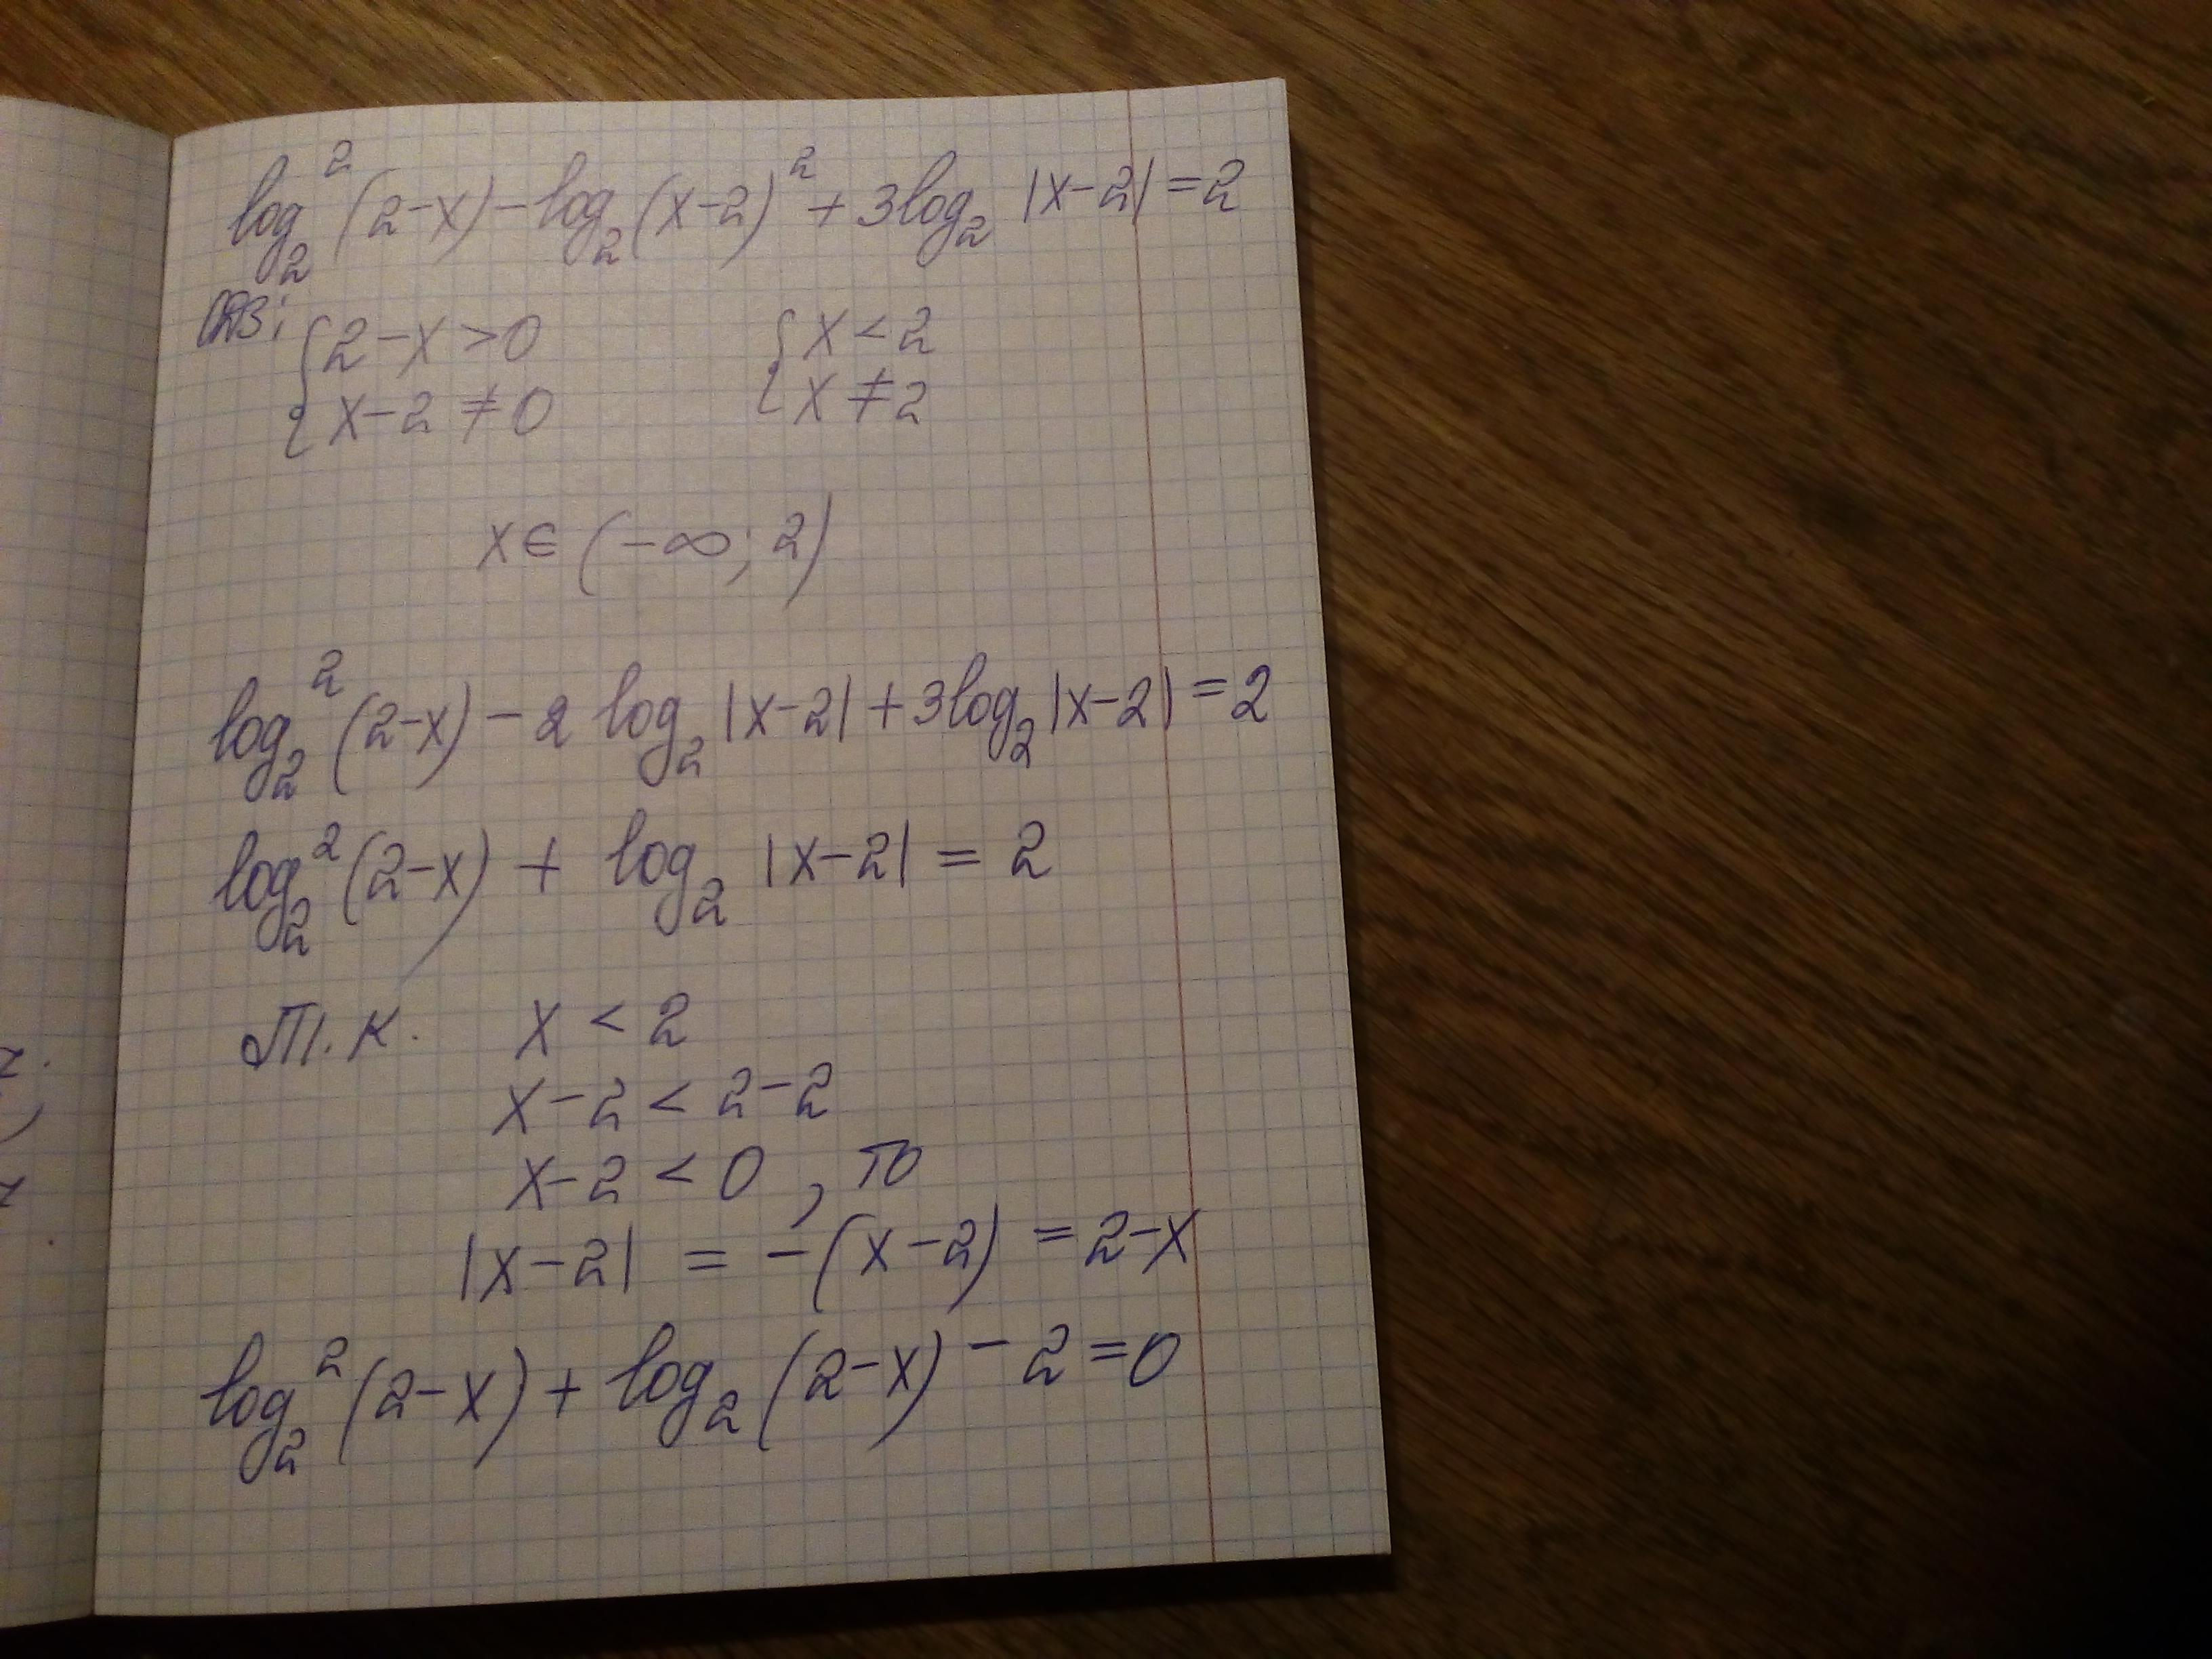 log₂²(2-x) - log₂(x-2)² + 3log₂ |x-2| = 2
ОДЗ: { 2-x > 0 { x < 2
{ x-2 ≠ 0 { x ≠ 2
x ∈ (-∞; 2)
log₂²(2-x) - 2 log₂ |x-2| + 3log₂ |x-2| = 2
log₂²(2-x) + log₂ |x-2| = 2
Т.к. x < 2
x-2 < 2-2
x-2 < 0, то
|x-2| = -(x-2) = 2-x
log₂²(2-x) + log₂(2-x) - 2 = 0